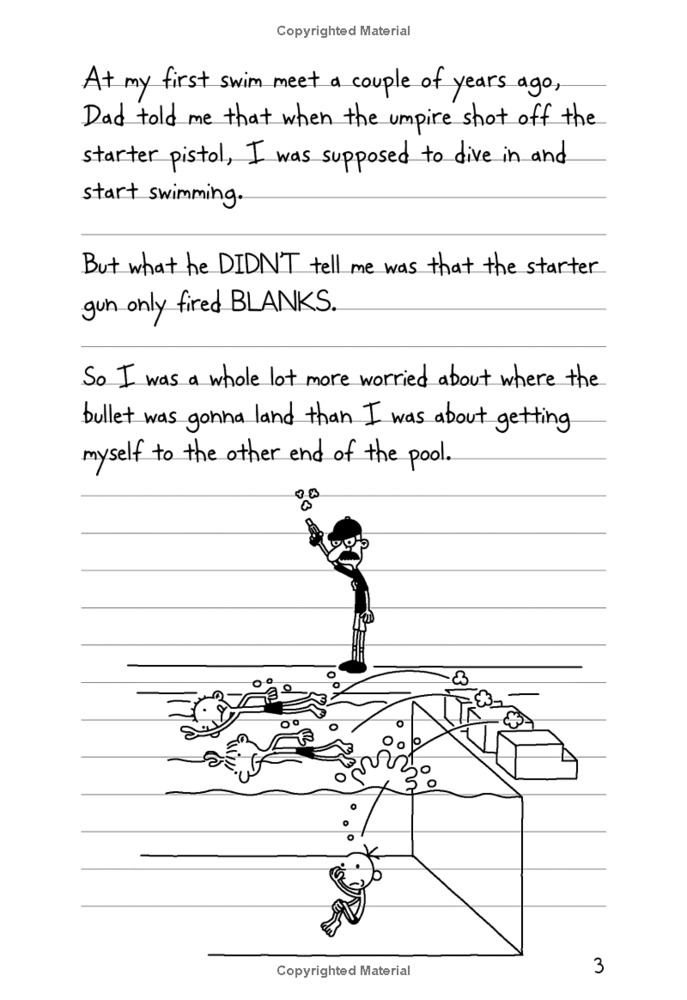 Copyrighted Material
At my first swim meet a couple of years ago,
Dad told me that when the umpire shot off the
starter pistol, I was supposed to dive in and
start swimming.
But what he DIDN'T tell me was that the starter
gun only fired BLANKS.
So I was a whole lot more worried about where the
bullet was gonna land than I was about getting
myself to the other end of the pool.
3
Copyrighted Material